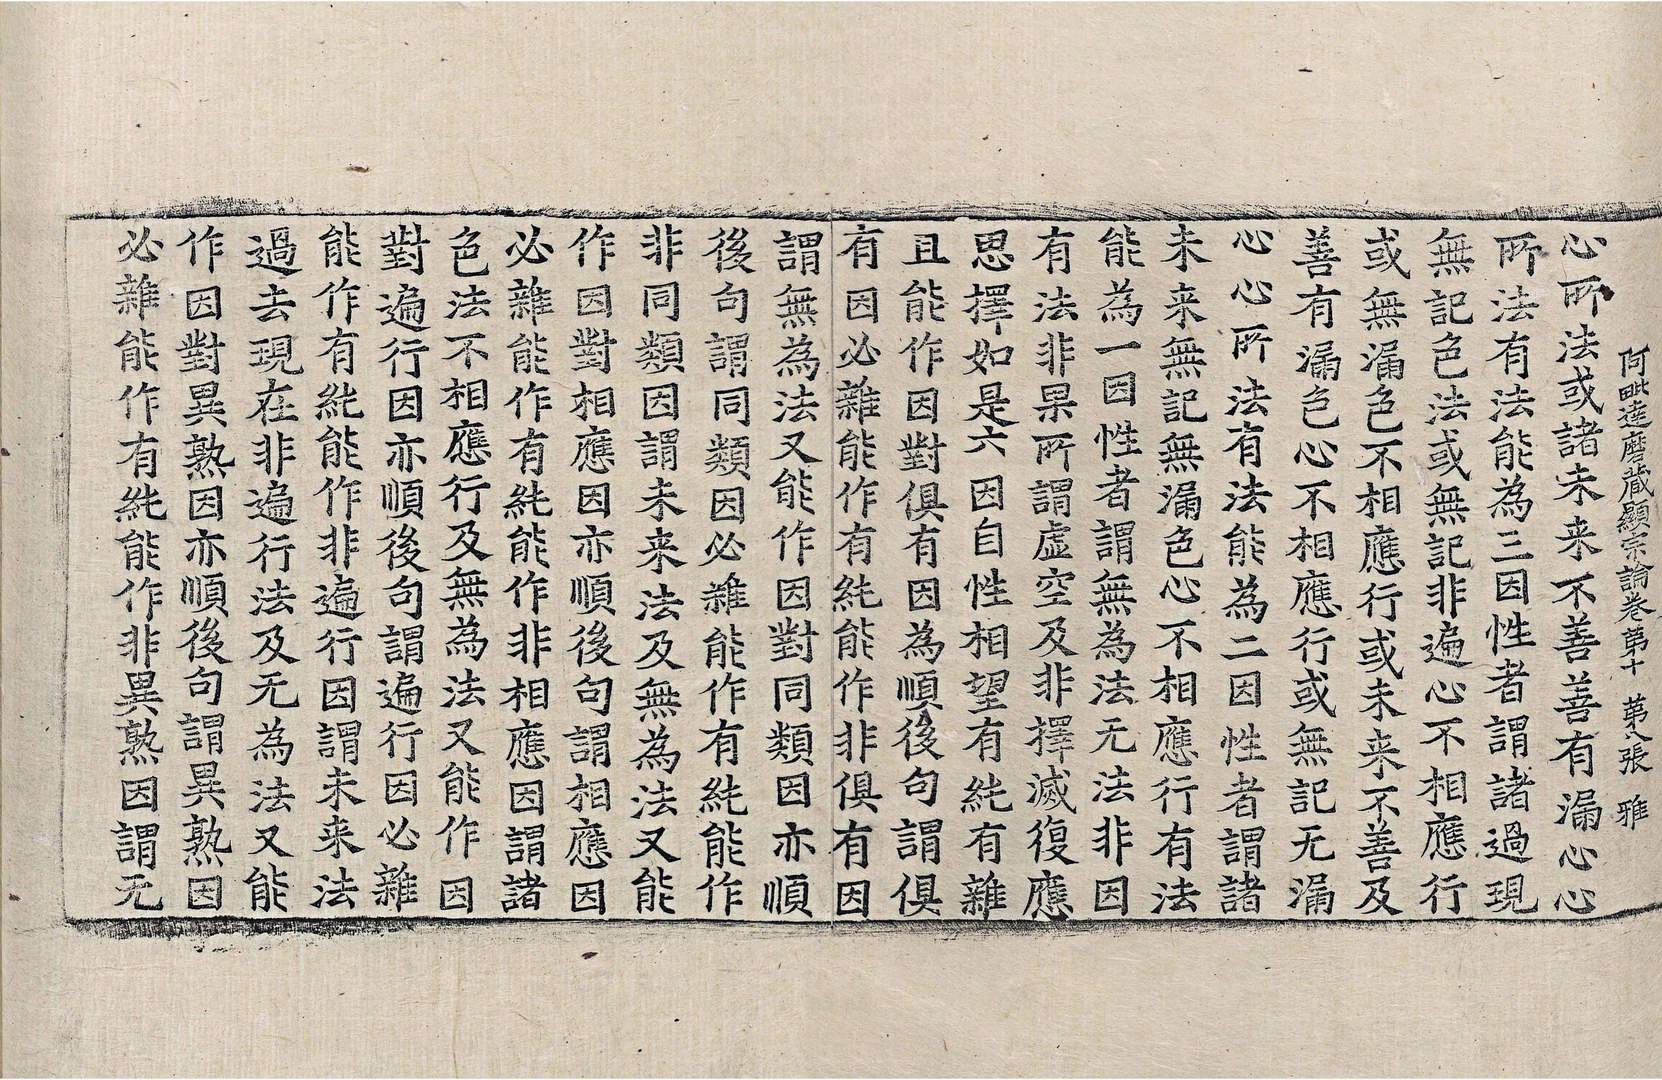 阿毗達磨藏顯宗論卷第十　第八張　雅
心所法或諸未来不善善有漏心心
所法有法能為三因性者謂諸過現
無記色法或無記非遍心不相應行
或無漏色不相應行或未来不善及
善有漏色心不相應行或無記无漏
心心所法有法能為二因性者謂諸
未来無記無漏色心不相應行有法
能為一因性者謂無為法无法非因
有法非果所謂虛空及非擇滅復應
思擇如是六因自性相望有純有雜
且能作因對俱有因為順後句謂俱
有因必雜能作有純能作非俱有因
謂無為法又能作因對同類因亦順
後句謂同類因必雜能作有純能作
非同類因謂未来法及無為法又能
作因對相應因亦順後句謂相應因
必雜能作有純能作非相應因謂諸
色法不相應行及無為法又能作因
對遍行因亦順後句謂遍行因必雜
能作有純能作非遍行因謂未来法
過去現在非遍行法及无為法又能
作因對異熟因亦順後句謂異熟因
必雜能作有純能作非異熟因謂无